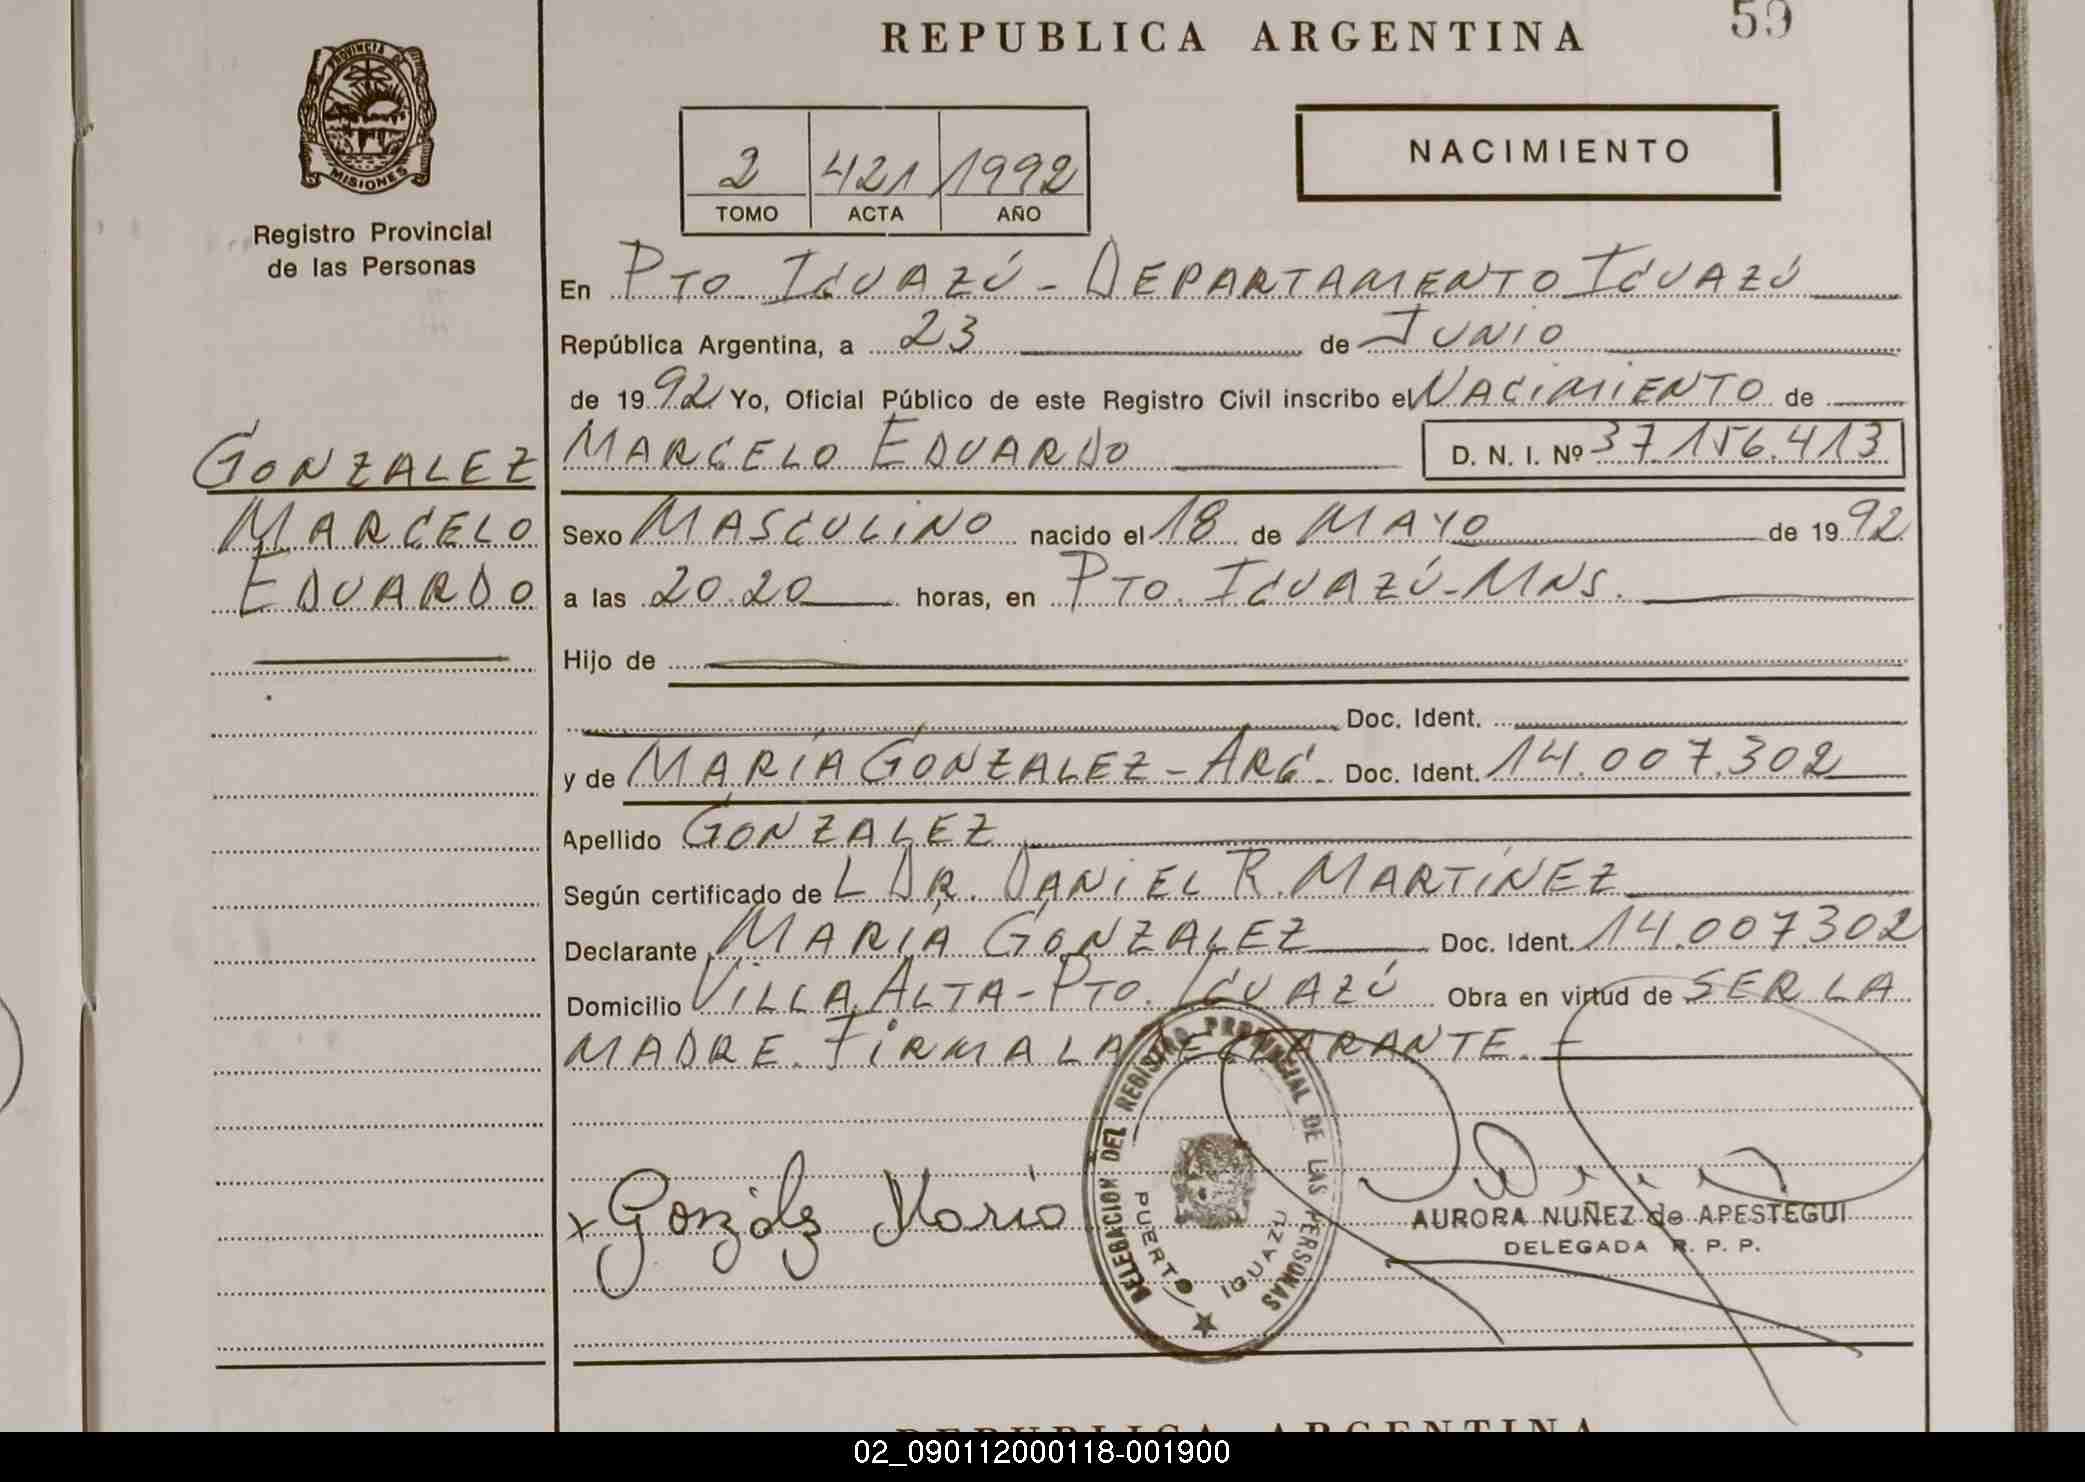 REPUBLICA ARGENTINA
59
PROVINCIA DE
MISIONES
Registro Provincial
de las Personas
2 421 1992
TOMO ACTA AÑO
NACIMIENTO
En PTO IGUAZÚ - DEPARTAMENTO IGUAZÚ
República Argentina, a 23 de JUNIO
de 1992 Yo, Oficial Público de este Registro Civil inscribo el NACIMIENTO de
GONZALEZ
MARCELO
EDUARDO
MARCELO EDUARDO D. N. I. Nº 37.156.413
Sexo MASCULINO nacido el 18 de MAYO de 1992
a las 20.20 horas, en PTO. IGUAZÚ-MNS.
Hijo de
Doc. Ident.
y de MARÍA GONZALEZ - ARG. Doc. Ident. 14.007.302
Apellido GONZALEZ
Según certificado de L DR. DANIEL R. MARTÍNEZ
Declarante MARÍA GONZALEZ Doc. Ident. 14.007.302
Domicilio VILLA ALTA - PTO. IGUAZÚ Obra en virtud de SER LA
MADRE. FIRMA LA DECLARANTE.
DELEGACION DEL REGISTRO PROVINCIAL DE LAS PERSONAS
PUERTO IGUAZU
x González María
AURORA NUÑEZ de APESTEGUI
DELEGADA R. P. P.
REPUBLICA ARGENTINA
02_090112000118-001900